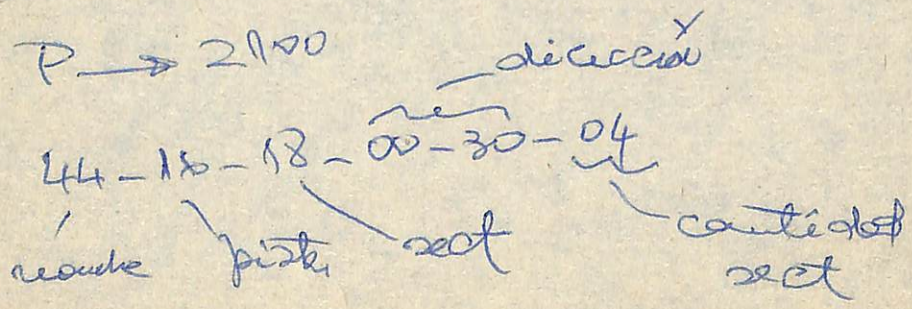 P → 2100
dirección
44-18-18-00-30-04
pista sect cantidad
sect